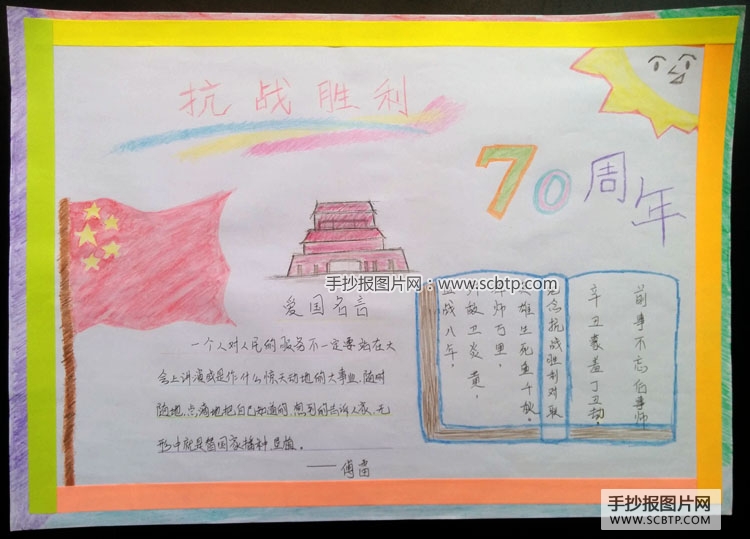 抗战胜利
70周年
手抄报图片网：www.scbtp.com
爱国名言
一个人对人民的服务不一定要站在大
会上讲演或是作什么惊天动地的大事业,随时
随地,点滴地把自己知道的,想到的告诉人家,无
形中就是替国家播种、垦植。
——傅雷
前事不忘后事师
辛丑蒙羞丁丑劫。
念抗战胜利对联
雄生死垂千秋。
师万里。
敌卫炎黄。
战八年。
手抄报图片网
WWW.SCBTP.COM